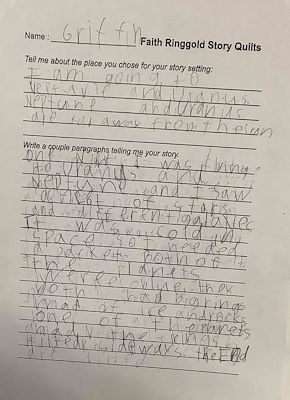 Name: Griffin Faith Ringgold Story Quilts
Tell me about the place you chose for your story setting:
I am going to
Neptune and Uranus
Neptune and Uranus
are far away from the sun
Write a couple paragraphs telling me your story.
one night I was flying
to Uranus and
Neptune and I saw
a lot of stars
and different galaxies
It was cold in
space so I needed
a jacket both of
the planets
were blue they
both had rings
mad of ice and rocks
one of the planets
had the rings
tilted sidewars the End
are